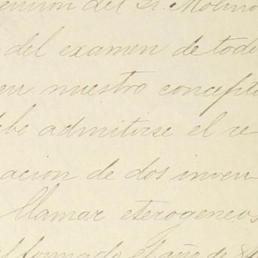 del Sr. Molino
del examen de tod
en nuestro concepto
be admitirse el re
acion de dos inven
llamar eterogeneos
formado el año de